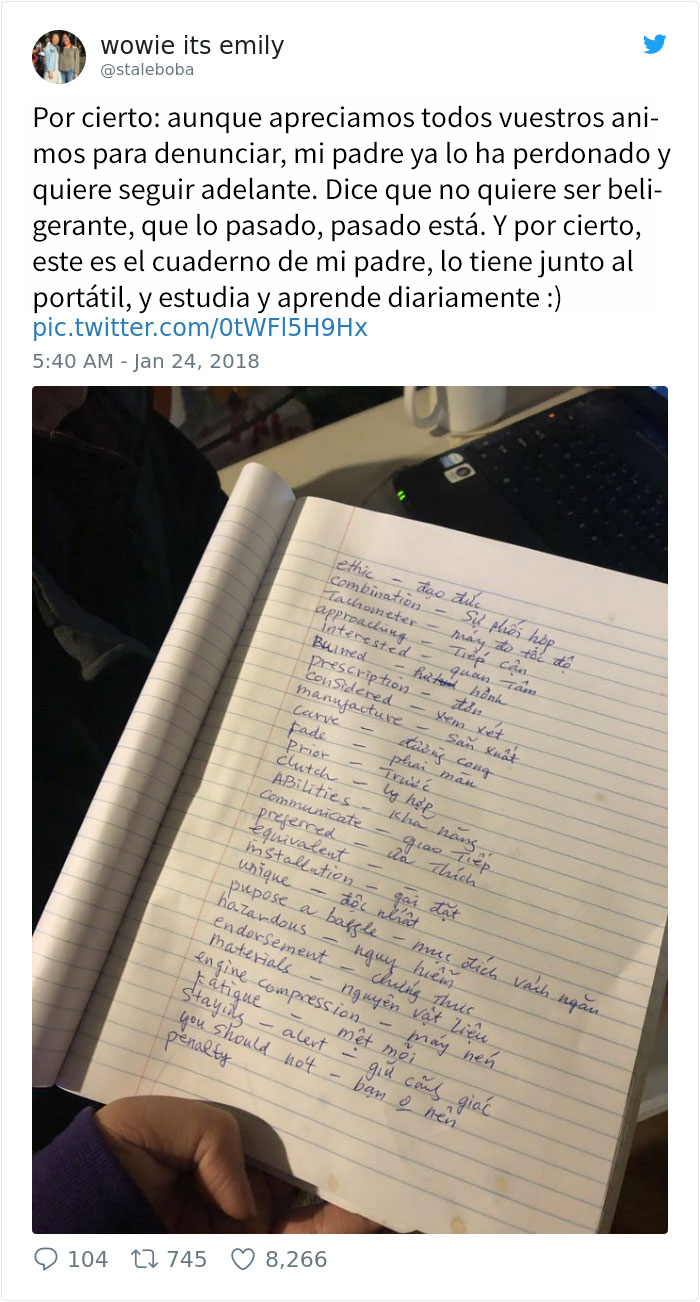 wowie its emily
@staleboba
Por cierto: aunque apreciamos todos vuestros ani-
mos para denunciar, mi padre ya lo ha perdonado y
quiere seguir adelante. Dice que no quiere ser beli-
gerante, que lo pasado, pasado está. Y por cierto,
este es el cuaderno de mi padre, lo tiene junto al
portátil, y estudia y aprende diariamente :)
pic.twitter.com/0tWFl5H9Hx
5:40 AM - Jan 24, 2018
ethic - đạo đức
combination - Sự phối hợp
Tachometer - máy đo tốc độ
approaching - Tiếp cận
interested - quan Tâm
Buined - hỏnh
prescription - đơn
considered - xem xét
manufacture - Sản xuất
carve - đường cong
fade - phai màu
prior - Trước
clutch - ly hợp
ABilities - Kha năng
communicate - giao Tiếp
preferred - ưa Thích
equivalent -
installution - gài đặt
unique - độc nhất
pupose a baffle - mục đích vách ngăn
hazardous - nguy hiểm
endorsement - chứng Thực
materials - nguyên vật liệu
engine compression - máy nén
fatigue - mệt mỏi
Staying - alert - giữ cảng giác
you should not - bạn o nên
penalty
104 745 8,266